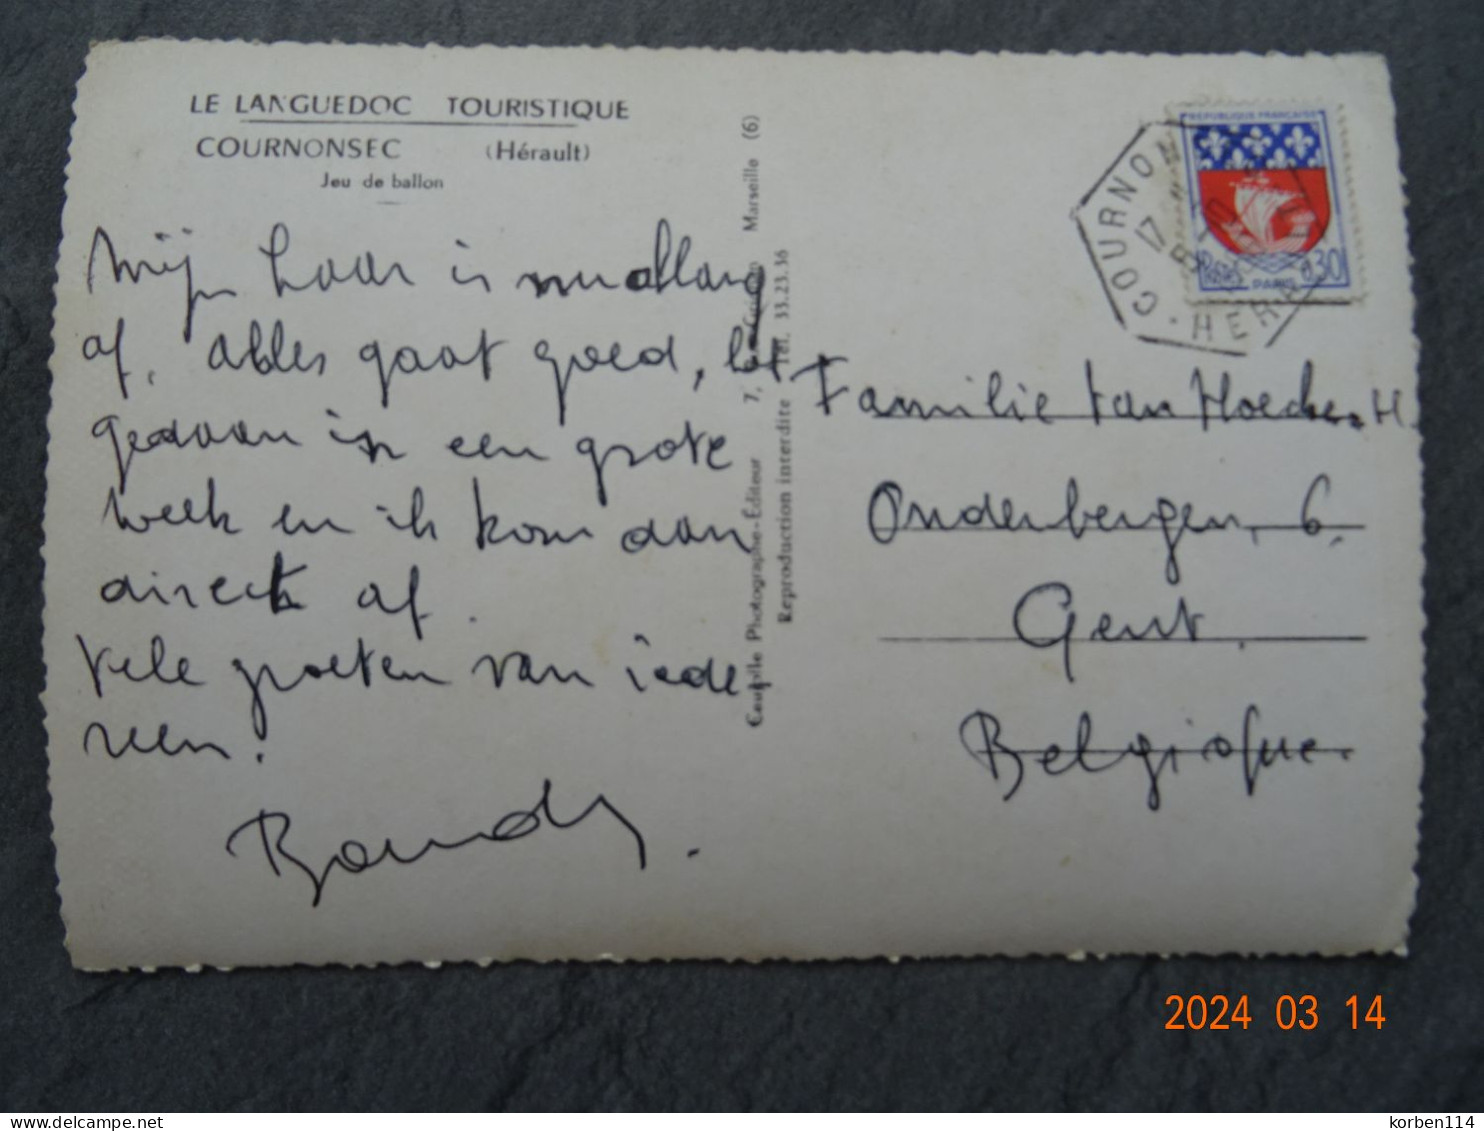 LE LANGUEDOC TOURISTIQUE
COURNONSEC (Hérault)
Jeu de ballon
Mijn haar is nu allang
af. alles gaat goed, het
gedaan is een grote
week en ik kom dan
direct af.
Vele groeten van iede
reen.
7, Marseille (6)
Tél. 33.23.36
Photographe-Editeur
Reproduction interdite
REPUBLIQUE FRANÇAISE
Postes
0,30
PARIS
COURNON
17
HERAULT
Familie Van Hoecke. H.
Onderbergen, 6.
Gent.
Belgique.
2024 03 14
delcampe.net
korben114